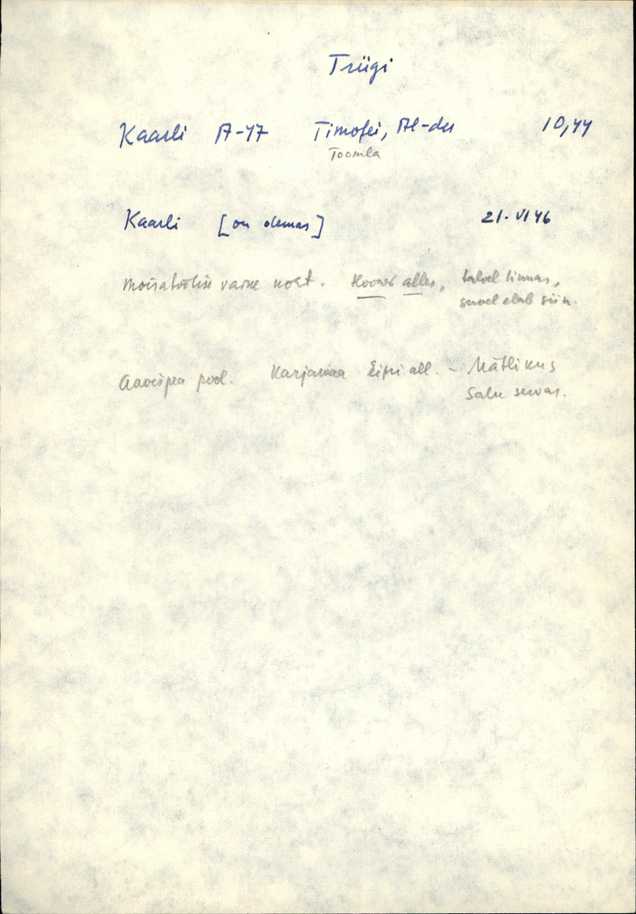 Triigi
Kaarli A-47 Timofei, Al-der 10,44
Toomla
Kaarli [on olemas] 21. VI 46
Mõisatööline vaine koht. Hoone alles, talvel linnas,
suvel elab siin.
Aavispea pool. Karjamaa all. - Mätlikus
Salu servas.